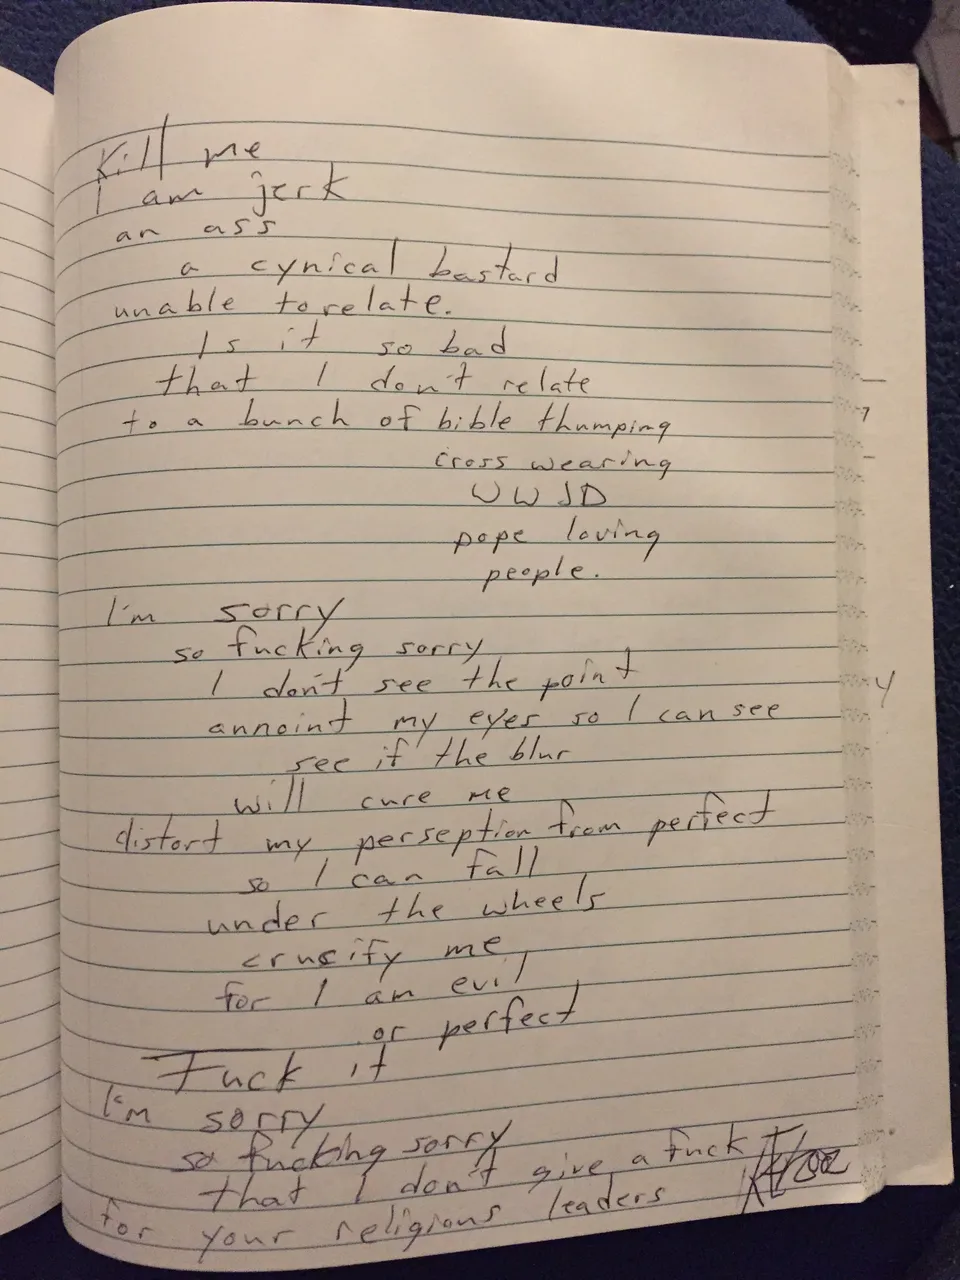 Kill me
I am jerk
an ass
a cynical bastard
unable to relate.
Is it so bad
that I don't relate
to a bunch of bible thumping
cross wearing
WWJD
pope loving
people.
I'm sorry
so fucking sorry
I don't see the point
annoint my eyes so I can see
see if the blur
will cure me
distort my perseption from perfect
so I can fall
under the wheels
crucify me
for I am evil
or perfect
Fuck it
I'm sorry
so fucking sorry
that I don't give a fuck
for your religious leaders